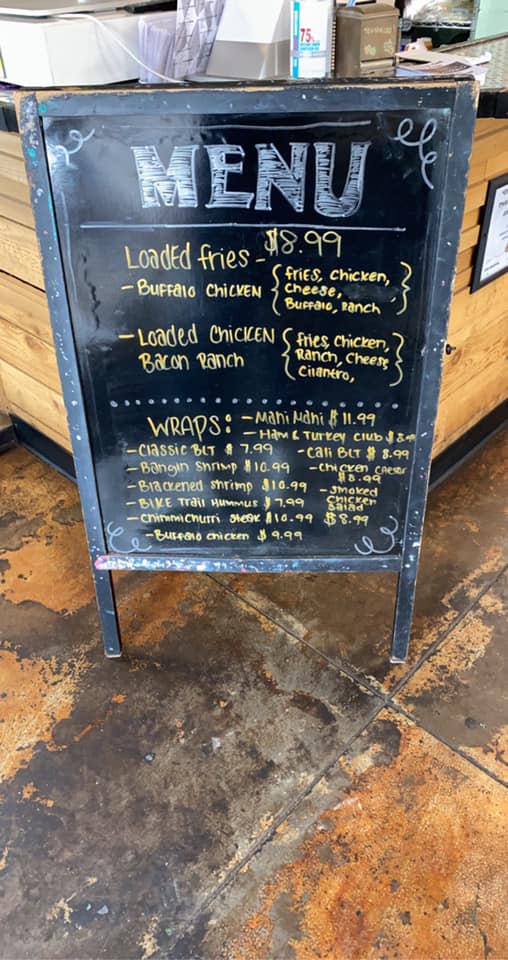 75%
MENU
Loaded fries - $8.99
- Buffalo Chicken { fries, chicken, cheese, Buffalo, Ranch }
- Loaded Chicken Bacon Ranch { fries, chicken, Ranch, cheese, Cilantro, }
WRAPS: - Mahi Mahi $11.99
- Ham & Turkey Club $8.99
- Classic BLT $7.99 - Cali BLT $8.99
- Bangin Shrimp $10.99 - Chicken Caesar $8.99
- Blackened Shrimp $10.99 - Smoked Chicken Salad $8.99
- BIKE Trail Hummus $7.99
- Chimmichurri Steak $10.99
- Buffalo chicken $9.99